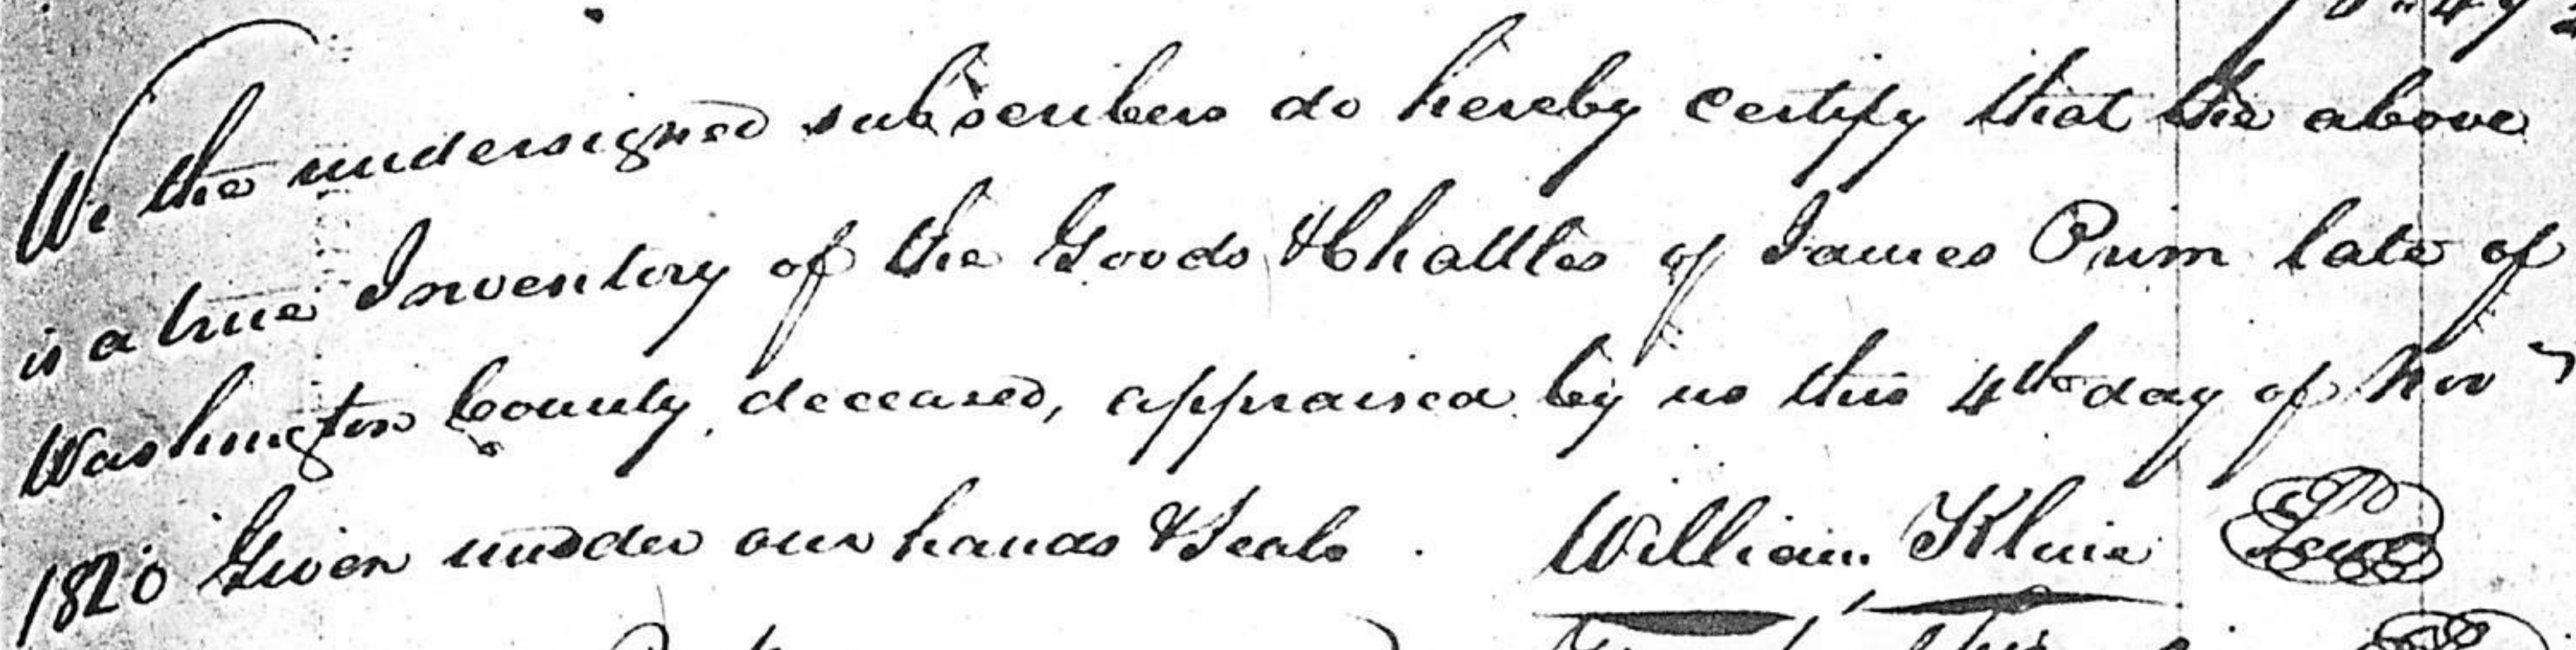 We the undersigned subscribers do hereby certify that the above
is a true Inventory of the Goods & Chattles of James Prim late of
Washington County, deceased, appraised by us this 4th day of Nov
1820 Given undder our hands & Seals. William Kline Seal